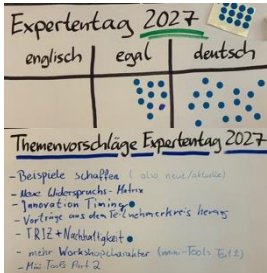 Expertentag 2027
englisch egal deutsch
Themenvorschläge Expertentag 2027
- Beispiele schaffen (also neue/aktuelle)
- Neue Widerspruchs-Matrix
- Innovation Timing
- Vorträge aus dem Teilnehmerkreis heraus
- TRIZ + Nachhaltigkeit
- mehr Workshopcharakter (mini-Tools Teil 2)
- Mini Tools Part 2